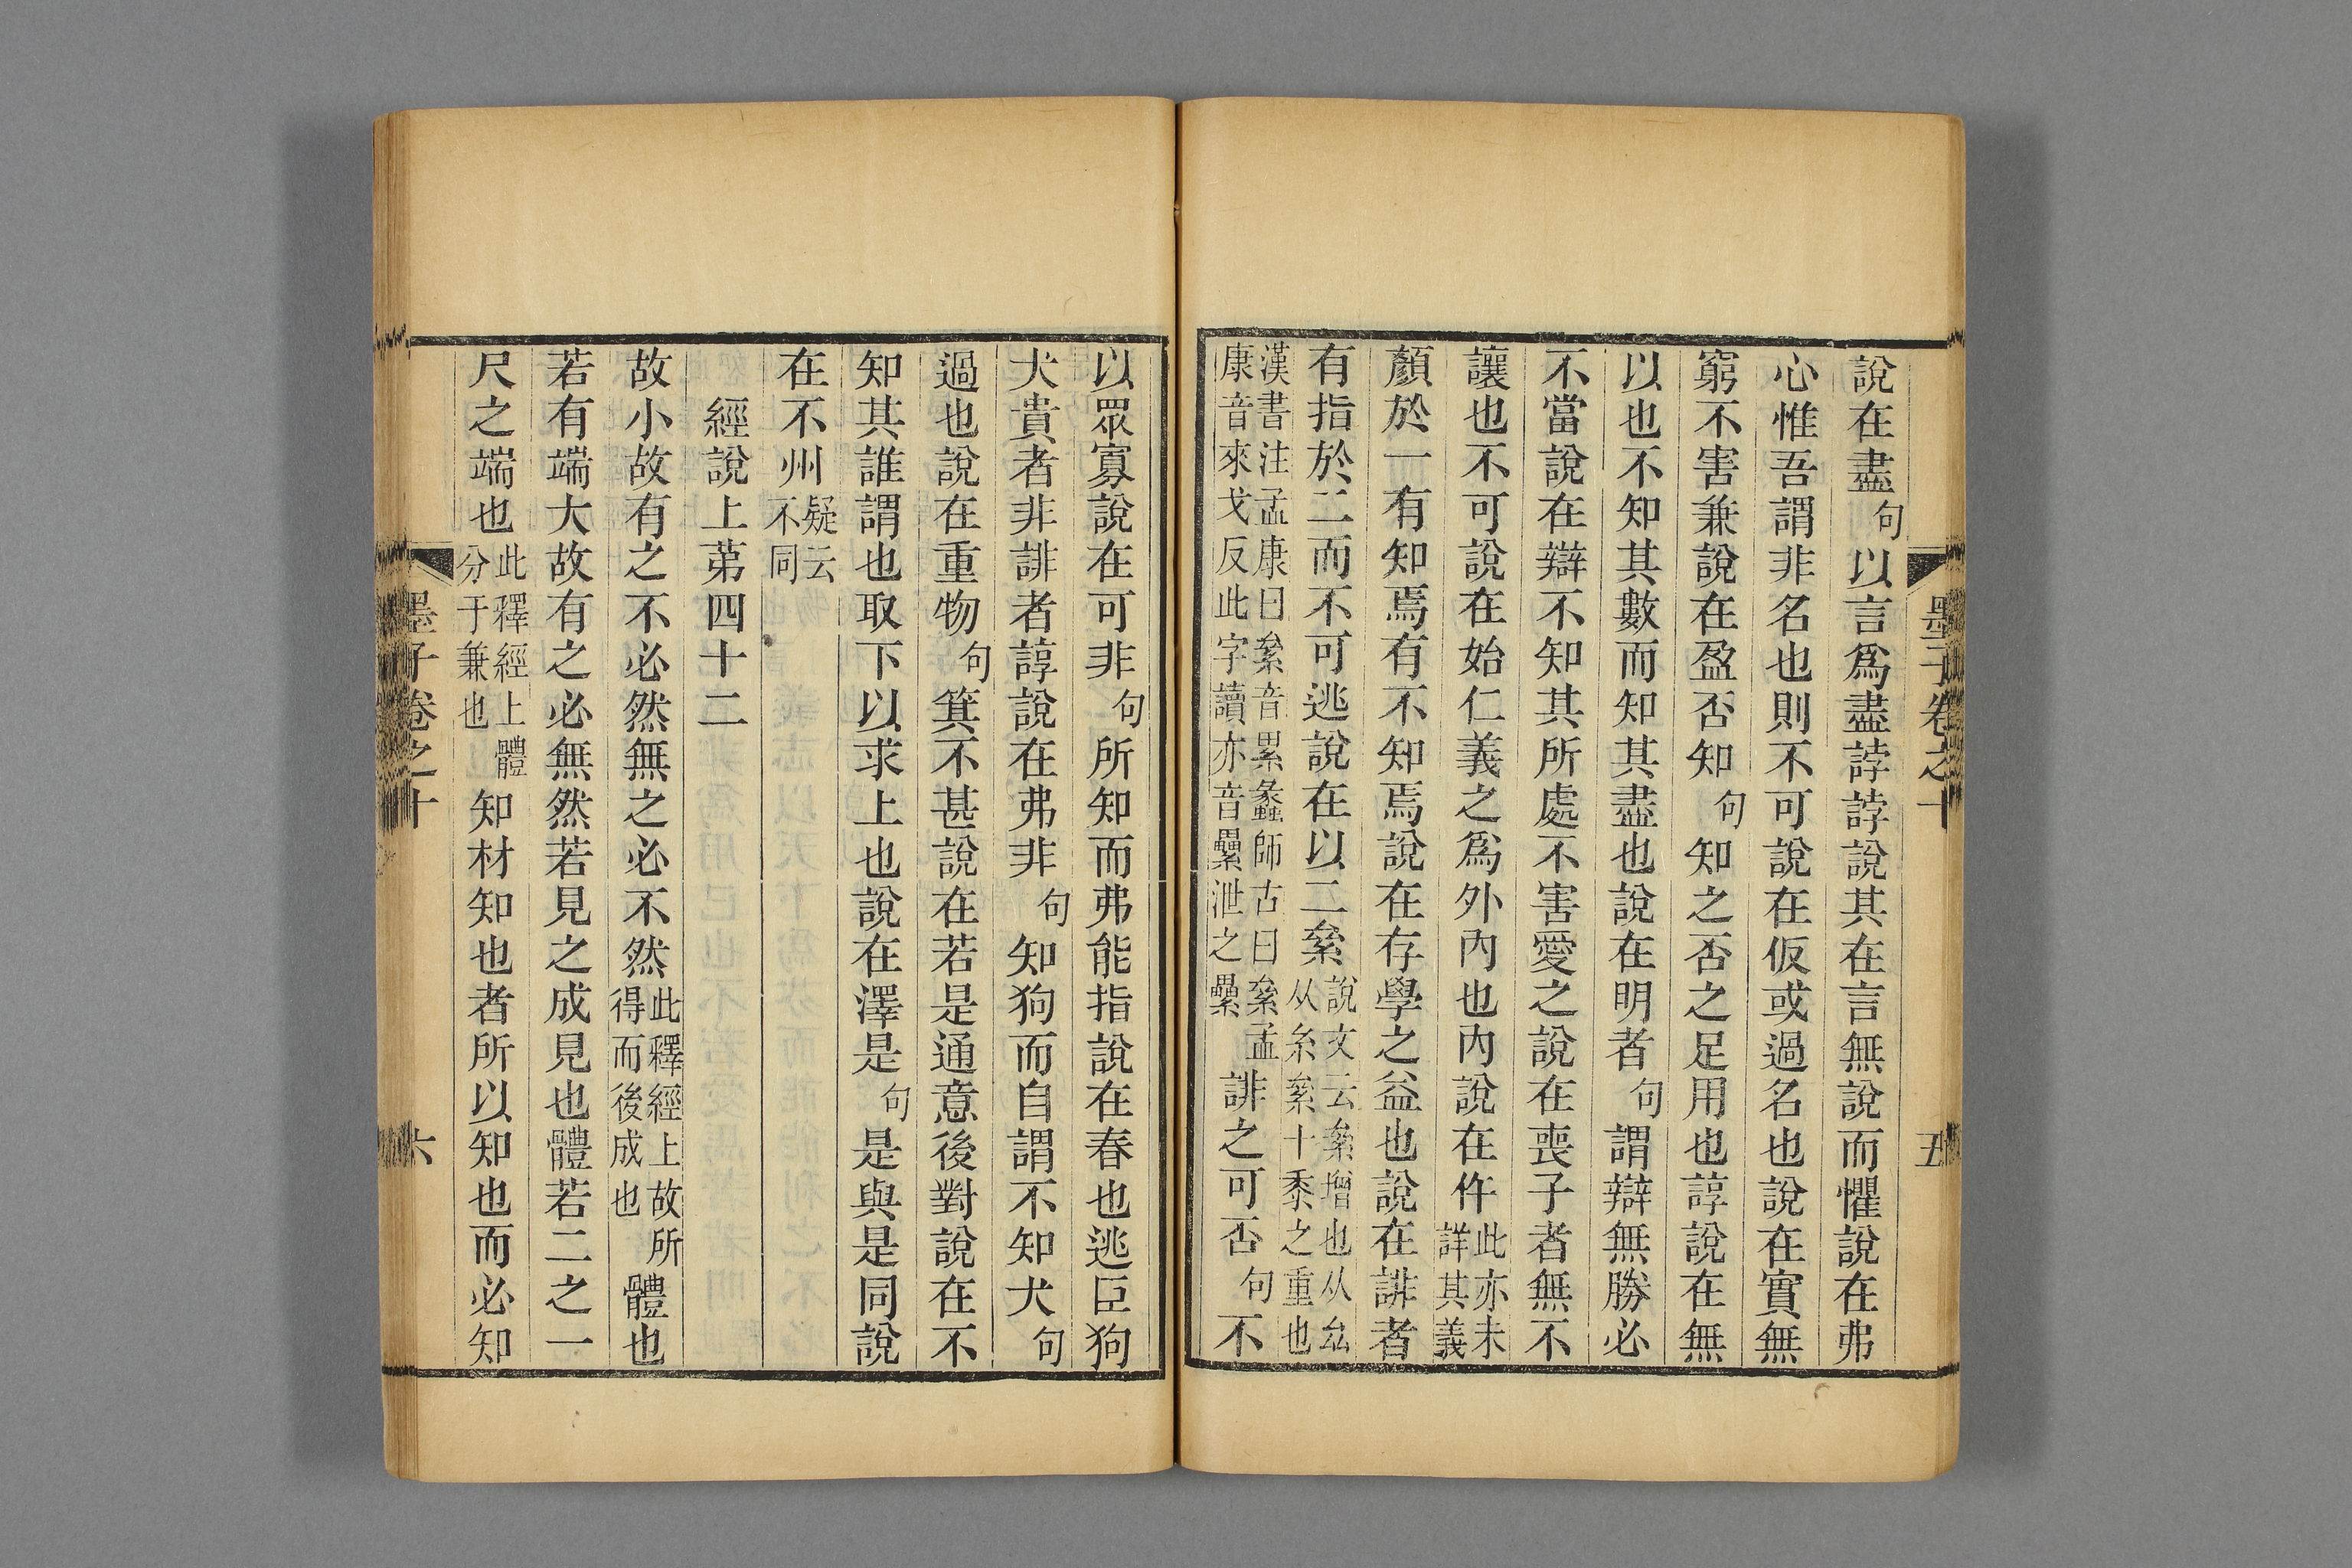 墨子卷之十 五
說在盡句以言爲盡誖誖說其在言無說而懼說在弗
心惟吾謂非名也則不可說在仮或過名也說在實無
窮不害兼說在盈否知句知之否之足用也諄說在無
以也不知其數而知其盡也說在明者句謂辯無勝必
不當說在辯不知其所處不害愛之說在喪子者無不
讓也不可說在始仁義之爲外內也內說在仵此亦未詳其義
顏於一有知焉有不知焉說在存學之益也說在誹者
有指於二而不可逃說在以二絫說文云絫增也从厽从糸絫十黍之重也
漢書注孟康曰絫音累蠡師古曰絫孟康音來戈反此字讀亦音纍泄之纍誹之可否句不
以眾寡說在可非句所知而弗能指說在春也逃臣狗
犬貴者非誹者諄說在弗非句知狗而自謂不知犬句
過也說在重物句箕不甚說在若是通意後對說在不
知其誰謂也取下以求上也說在澤是句是與是同說
在不州疑云不同
經說上苐四十二
故小故有之不必然無之必不然此釋經上故所得而後成也體也
若有端大故有之必無然若見之成見也體若二之一
尺之端也此釋經上體分于兼也知材知也者所以知也而必知
墨子卷之十 六